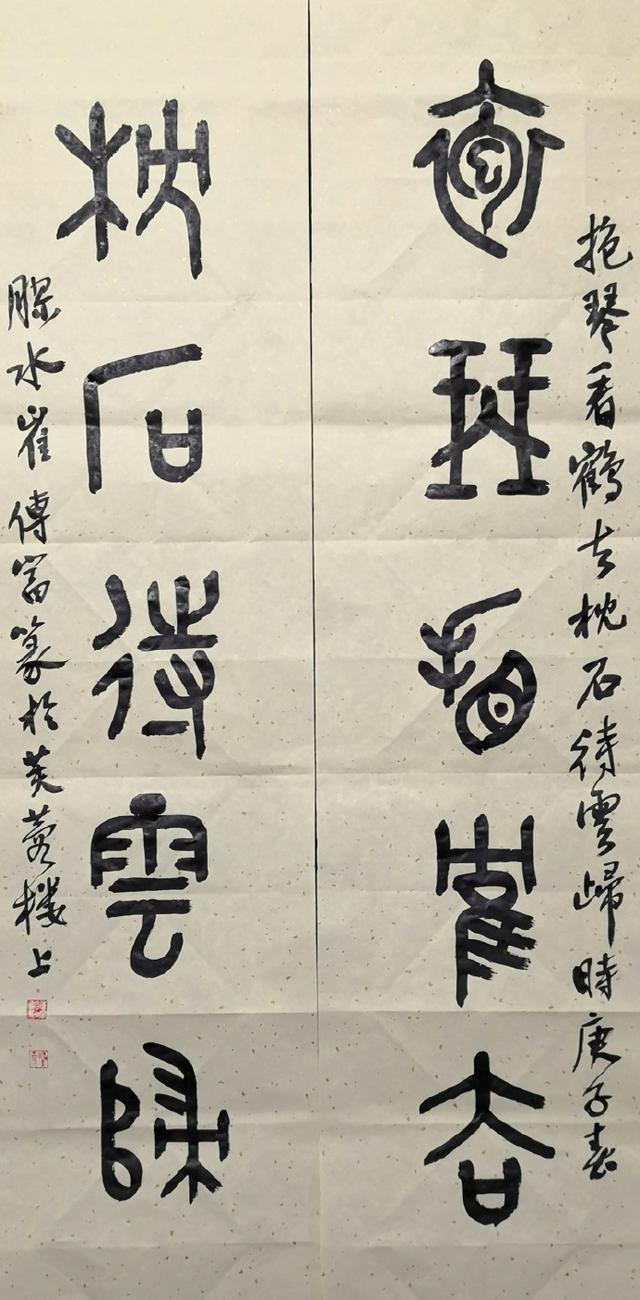 抱琴看鶴去枕石待雲歸時庚子春
抱琴看鶴去
枕石待雲歸
水崔傅富篆於芙蓉樓上